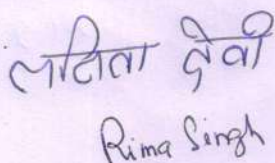 ललिता देवी
Rima Singh